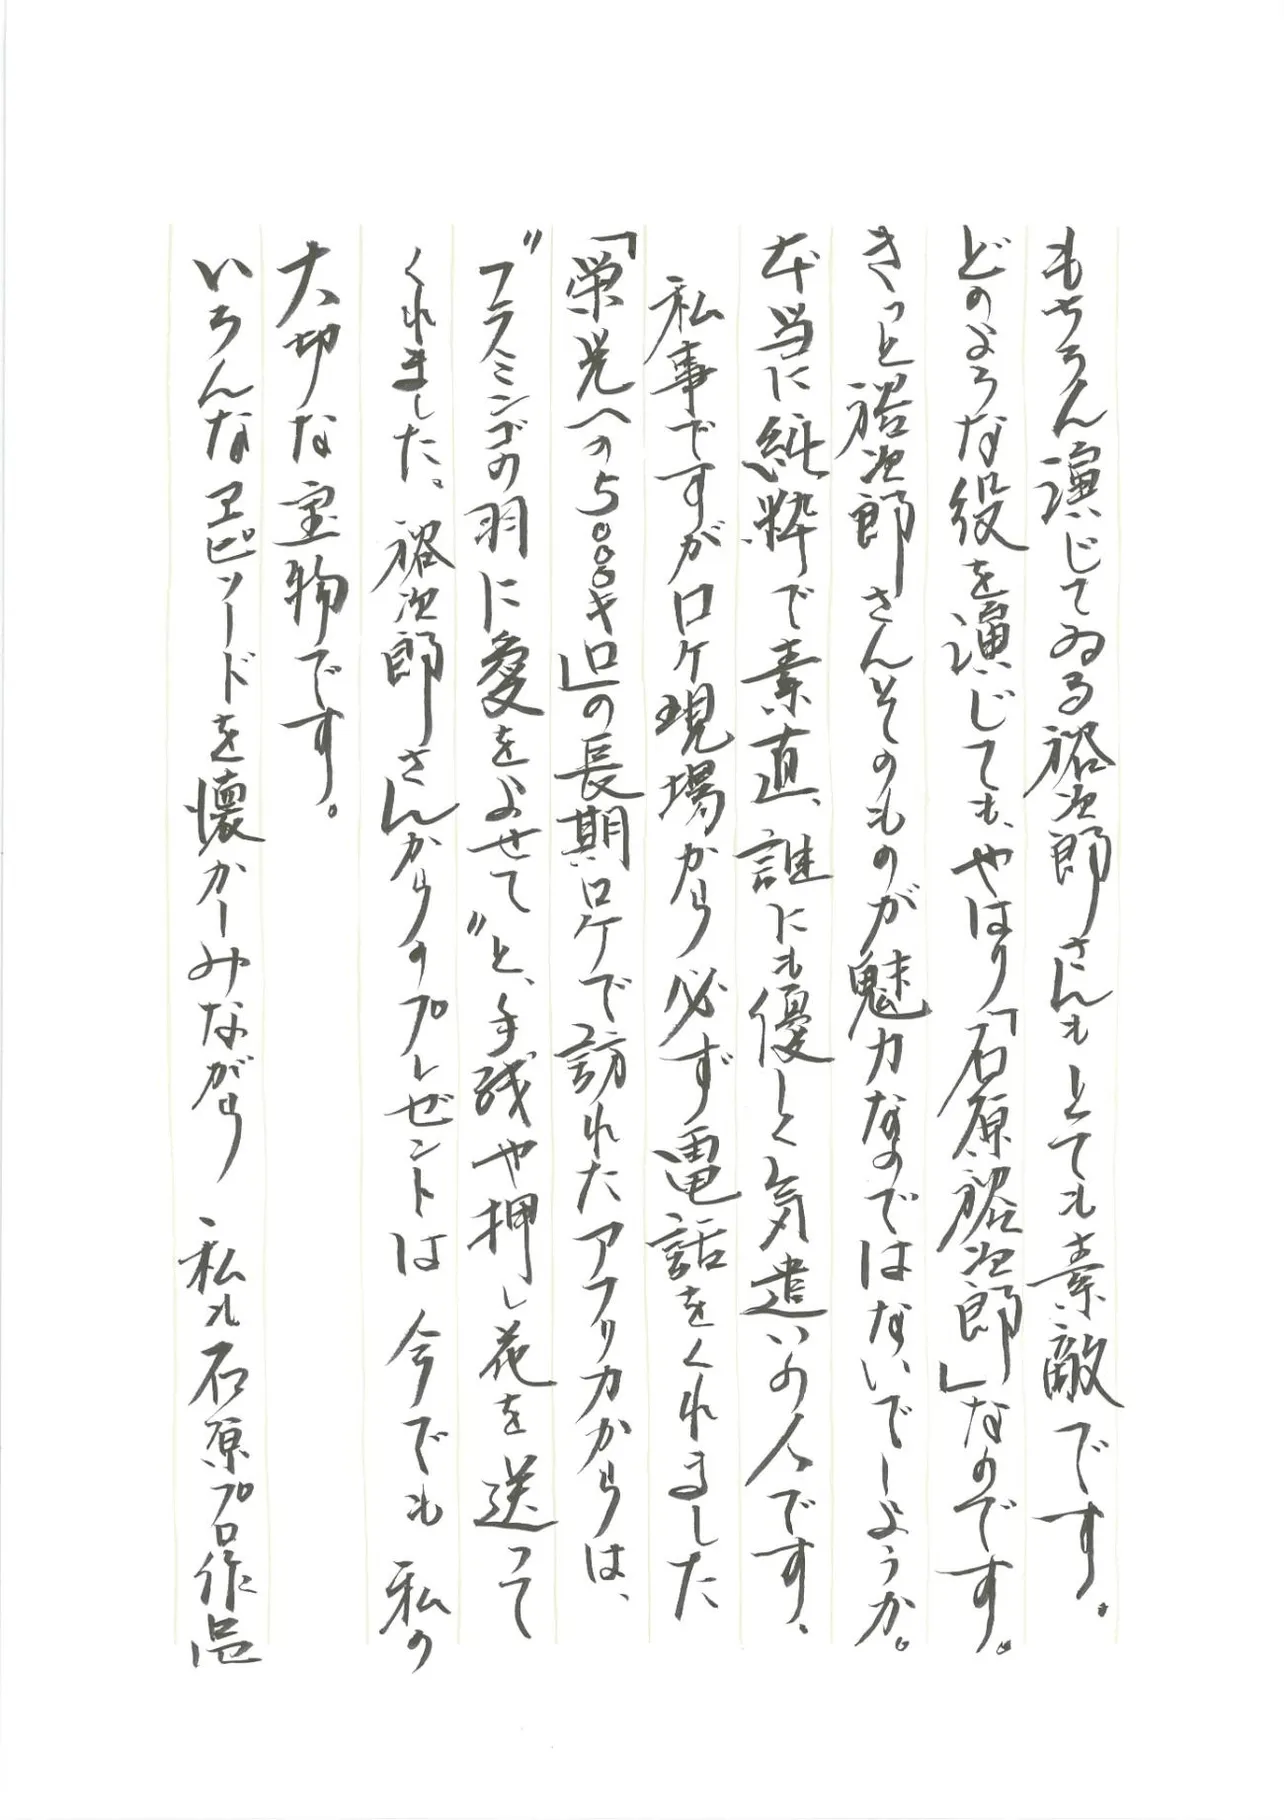 もちろん演じてゐる裕次郎さんもとても素敵です。
どのような役を演じても、やはり「石原裕次郎」なのです。
きっと裕次郎さんそのものが魅力なのではないでしょうか。
本当に純粋で素直、誰にも優しく気遣いの人です、
私事ですがロケ現場から必ず電話をくれました
「栄光への5000キロ」の長期ロケで訪れたアフリカからは、
〝フラミンゴの羽に愛をよせて〟と、手残や押し花を送って
くれました。裕次郎さんからのプレゼントは今でも私の
大切な宝物です。
いろんなエピソードを懐かしみながら私も石原プロ作品